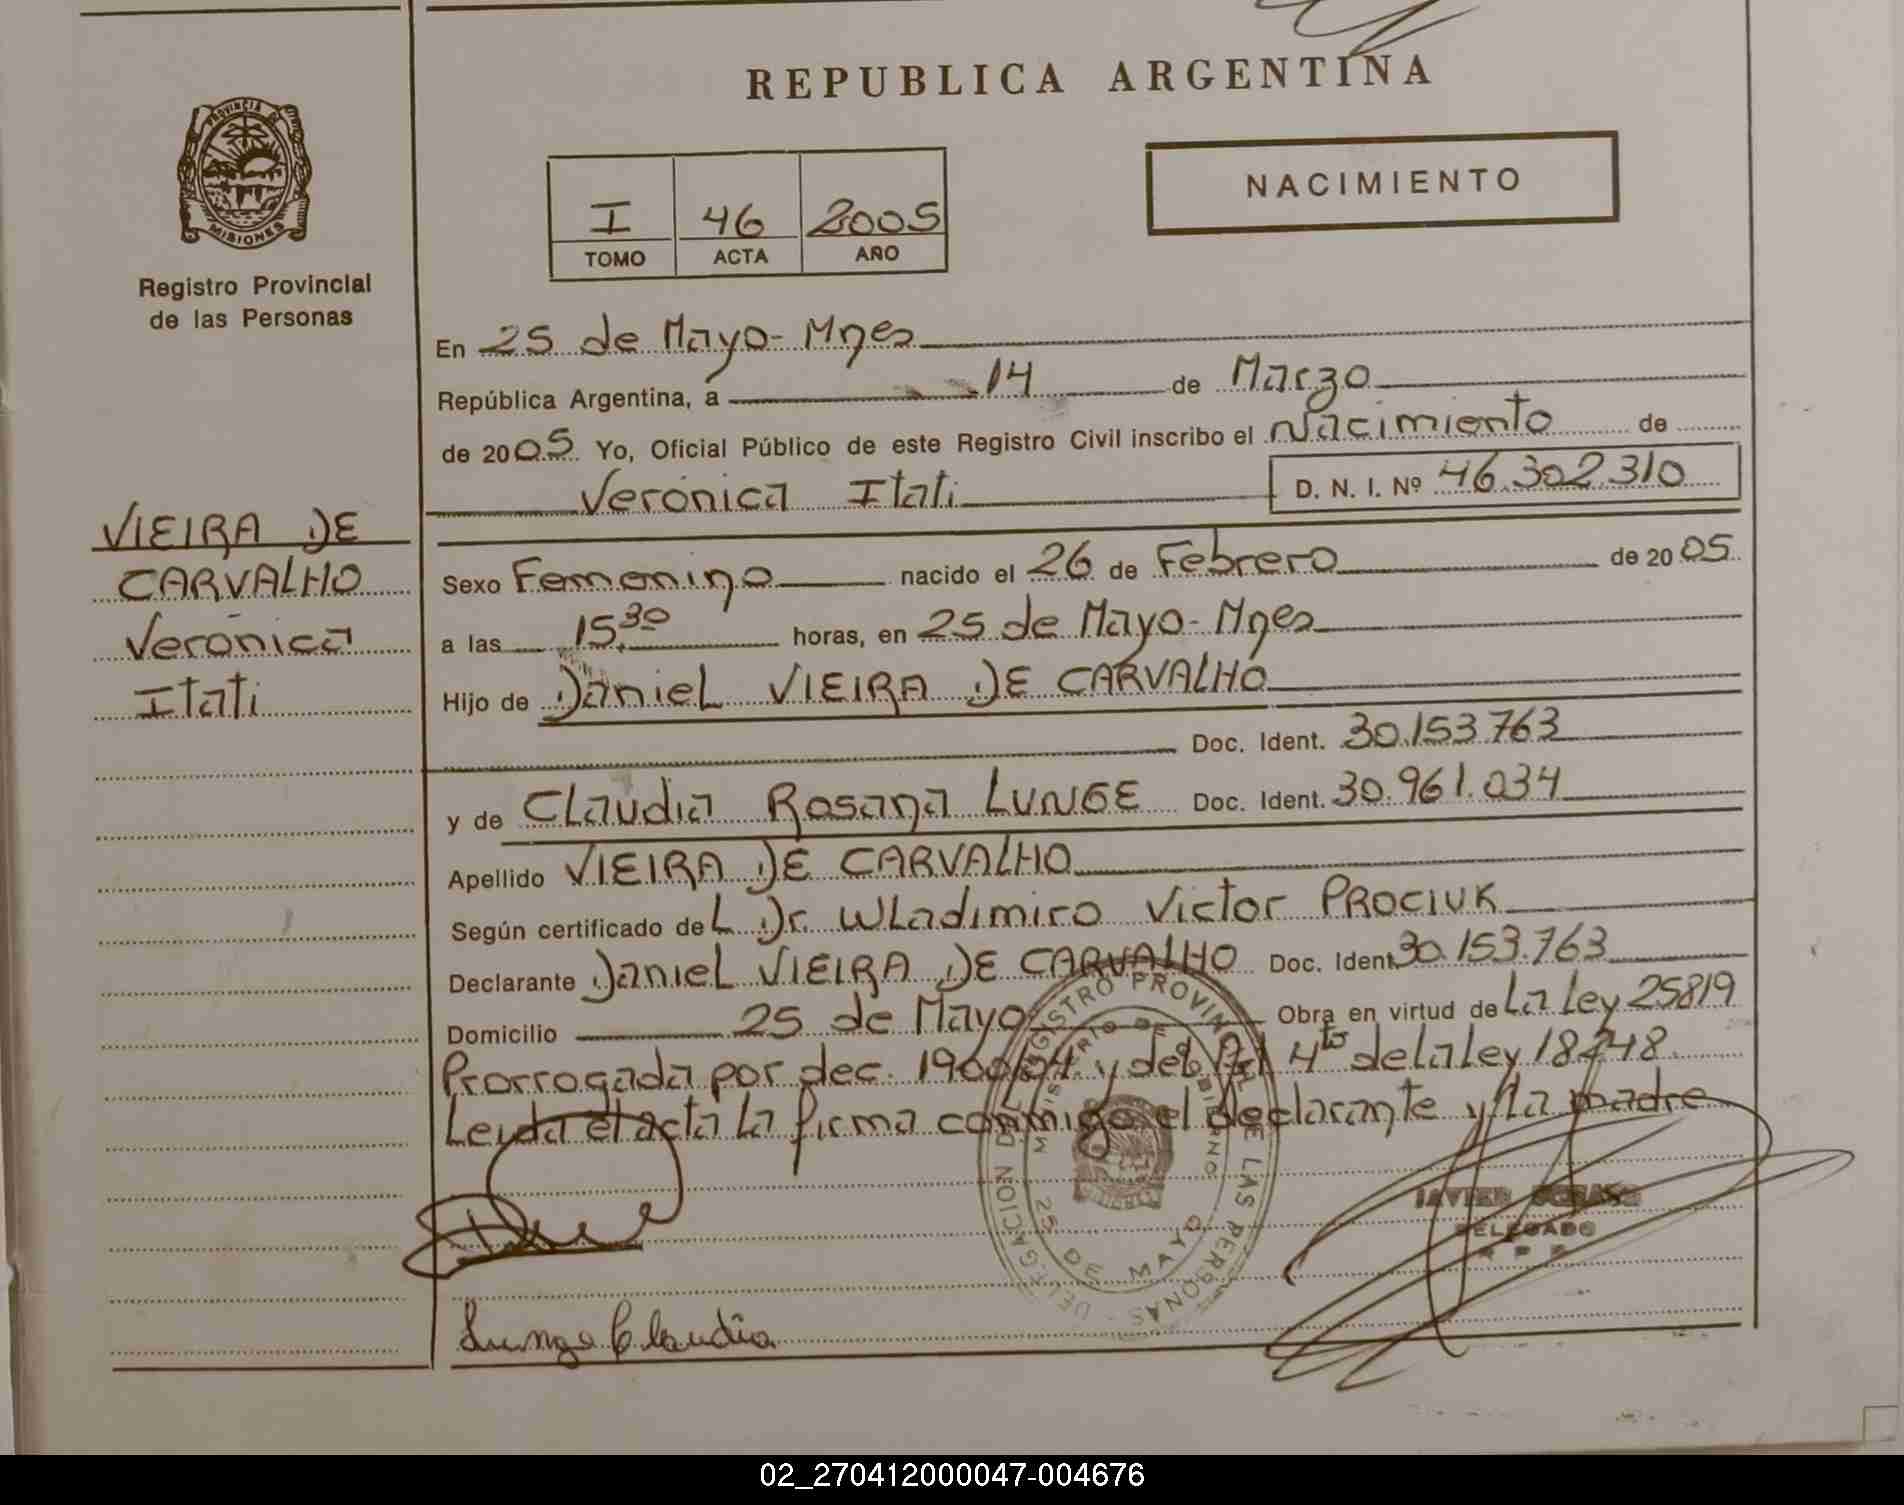 REPUBLICA ARGENTINA
PROVINCIA DE
MISIONES
Registro Provincial
de las Personas
I 46 2005
TOMO ACTA AÑO
NACIMIENTO
VIEIRA DE
CARVALHO
Verónica
Itatí
En 25 de Mayo- Mnes
República Argentina, a 14 de Marzo
de 2005 Yo, Oficial Público de este Registro Civil inscribo el Nacimiento de
Verónica Itatí D. N. I. Nº 46.302.310
Sexo Femenino nacido el 26 de Febrero de 2005
a las 15.30 horas, en 25 de Mayo- Mnes
Hijo de Daniel VIEIRA DE CARVALHO
Doc. Ident. 30.153.763
y de Claudia Rosana LUNGE Doc. Ident. 30.961.034
Apellido VIEIRA DE CARVALHO
Según certificado del Dr. Wladimiro Victor PROCIUK
Declarante Daniel VIEIRA DE CARVALHO Doc. Ident. 30.153.763
Domicilio 25 de Mayo Obra en virtud de La Ley 25819
Prorrogada por dec. 1900/04 y del Art 4to de la Ley 18248.
Leida el acta la firma conmigo el declarante y la madre
DELEGACION DEL REGISTRO PROVINCIAL DE LAS PERSONAS
MINISTERIO DE GOBIERNO
25 DE MAYO
JAVIER
DELEGADO
R P P
Lunge Claudia
02_270412000047-004676